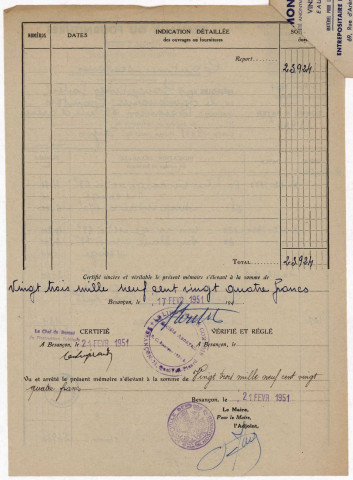 MON
VINS
EAU
ENTREPOSITAIRE
69, Rue d'Arè
NUMÉROS DATES INDICATION DÉTAILLÉE
des ouvrages ou fournitures
Report 23924
TOTAL 23.924
Certifié sincère et véritable le présent mémoire s'élevant à la somme de
Vingt trois mille neuf cent vingt quatre francs
Besançon, le 17 FEVR 1951 194
Le Chef de Bureau
CERTIFIÉ VÉRIFIÉ ET RÉGLÉ
A Besançon, le 21 FEVR 1951 A Besançon, le
Vu et arrêté le présent mémoire s'élevant à la somme de Vingt trois mille neuf cent vingt
quatre francs
Besançon, le 21 FEVR 1951
Le Maire,
Pour le Maire,
l'Adjoint,